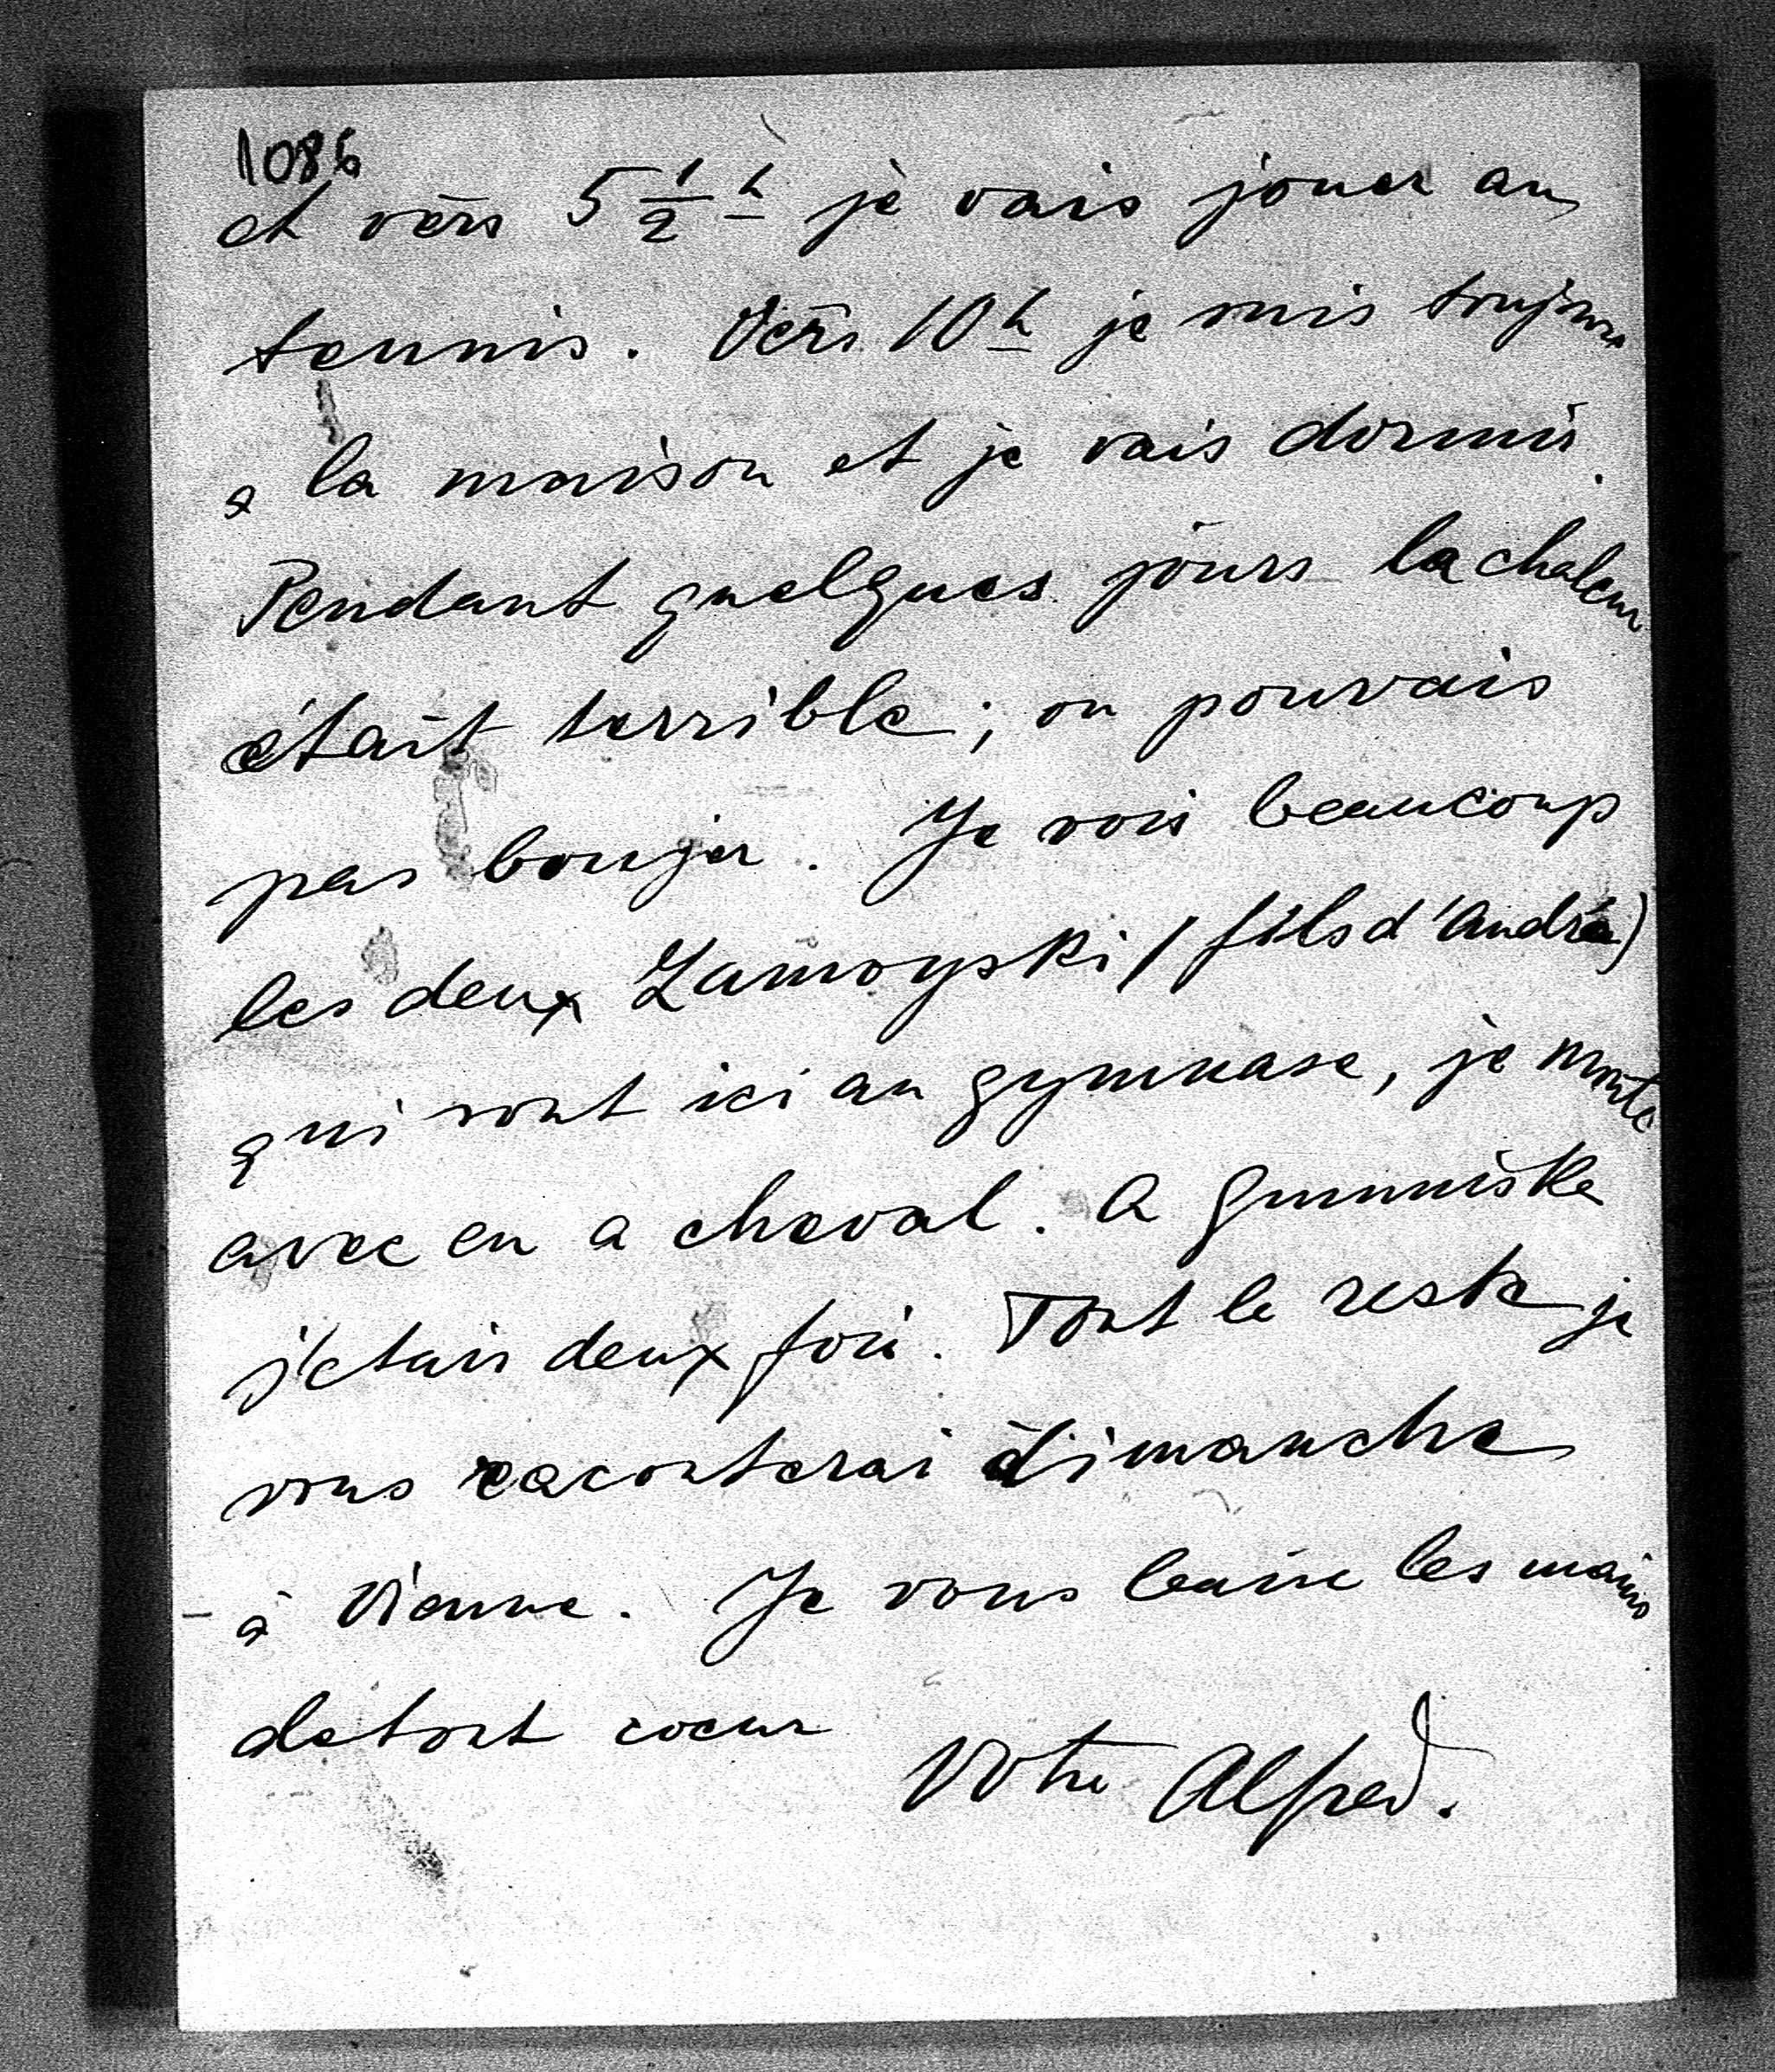 1086
et vers 5 1/2 h je vais jouer au
tennis. Vers 10 h je suis toujours
a la maison et je vais dormir.
Pendant quelques jours la chaleur
était terrible; on pouvais
pas boujer. Je vois beaucoup
les deux Zamoyski (fils d'André)
qui sont ici au gymnase, je monte
avec eu a cheval. A Gumniska
j'étais deux fois. Tout le reste je
vous raconterai dimanche
à Vienne. Je vous baise les mains
de tout coeur
Votre Alfred.